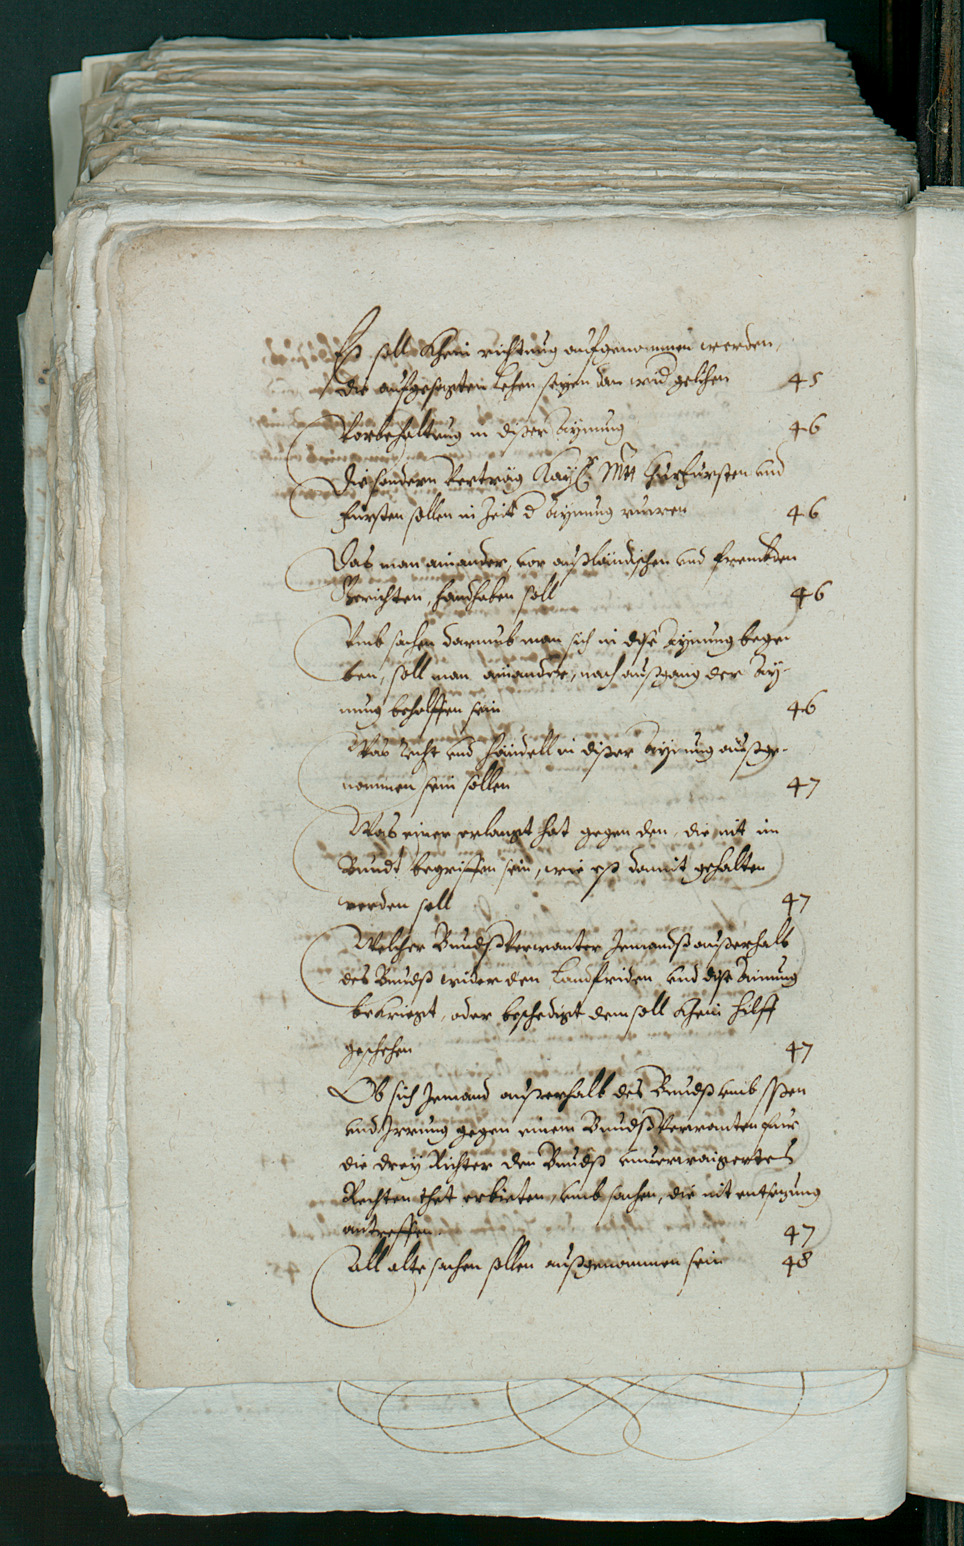 Eß soll khein richtung aufgenommen werden,
die aufgesagten Lehen seyen dan wid gelihen 45
Vorbehaltung in diser Aynung 46
Die sondern Verträg Kay: Mtt Churfursten vnd
Fursten sollen in Zeit d Aynung ruwen 46
Das man ainander, vor außländischen vnd frembden
Gerichten, handhaben soll 46
Vmb sachen darumb man sich in dise Aynung bege-
ben, soll man ainander, nach außgang der Ay-
nung beholffen sein 46
Was Recht vnd händell in diser Aynung außge-
nommen sein söllen 47
Was einer erlangt hat gegen den, die nit im
Bundt begriffen sein, wie eß damit gehalten
werden soll 47
Welcher Bundßverwanter Jemandß außerhalb
des Bundß wider den Landfriden vnd dise Ainung
bekriegt, oder beschedigt dem soll khein hilff
geschehen 47
Ob sich Jemand außerhalb des Bundß vmb
vnd Irrung gegen einem Bundßverwanten für
die drey Richter den Bundß vnuerwaigertes
Rechten thet erbieten, vmb sachen, die nit entsetzung
antreffen 47
All alte sachen sollen außgenommen sein 48